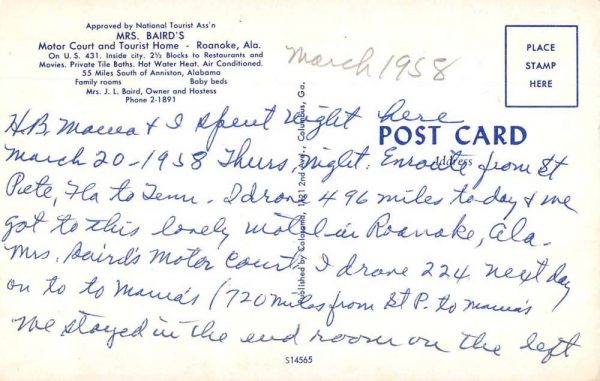 Approved by National Tourist Ass'n
MRS. BAIRD'S
Motor Court and Tourist Home - Roanoke, Ala.
On U.S. 431. Inside city. 2½ Blocks to Restaurants and
Movies. Private Tile Baths. Hot Water Heat. Air Conditioned.
55 Miles South of Anniston, Alabama
Family rooms Baby beds
Mrs. J. L. Baird, Owner and Hostess
Phone 2-1891
March 1958
PLACE
STAMP
HERE
POST CARD
Address
H.B. Mama & I spent night here
March 20-1958 Thurs, night. Enroute from St
Pete, Fla to Tenn. I drove 496 miles to-day & we
got to this lovely motel in Roanoke, Ala.
Mrs. Baird's Motor Court. I drove 224 next day
on to to Mama's (720 miles from St P. to Mama's
We stayed in the end room on the left
Published by Colorama, 1121 2nd Ave., Columbus, Ga.
S14565